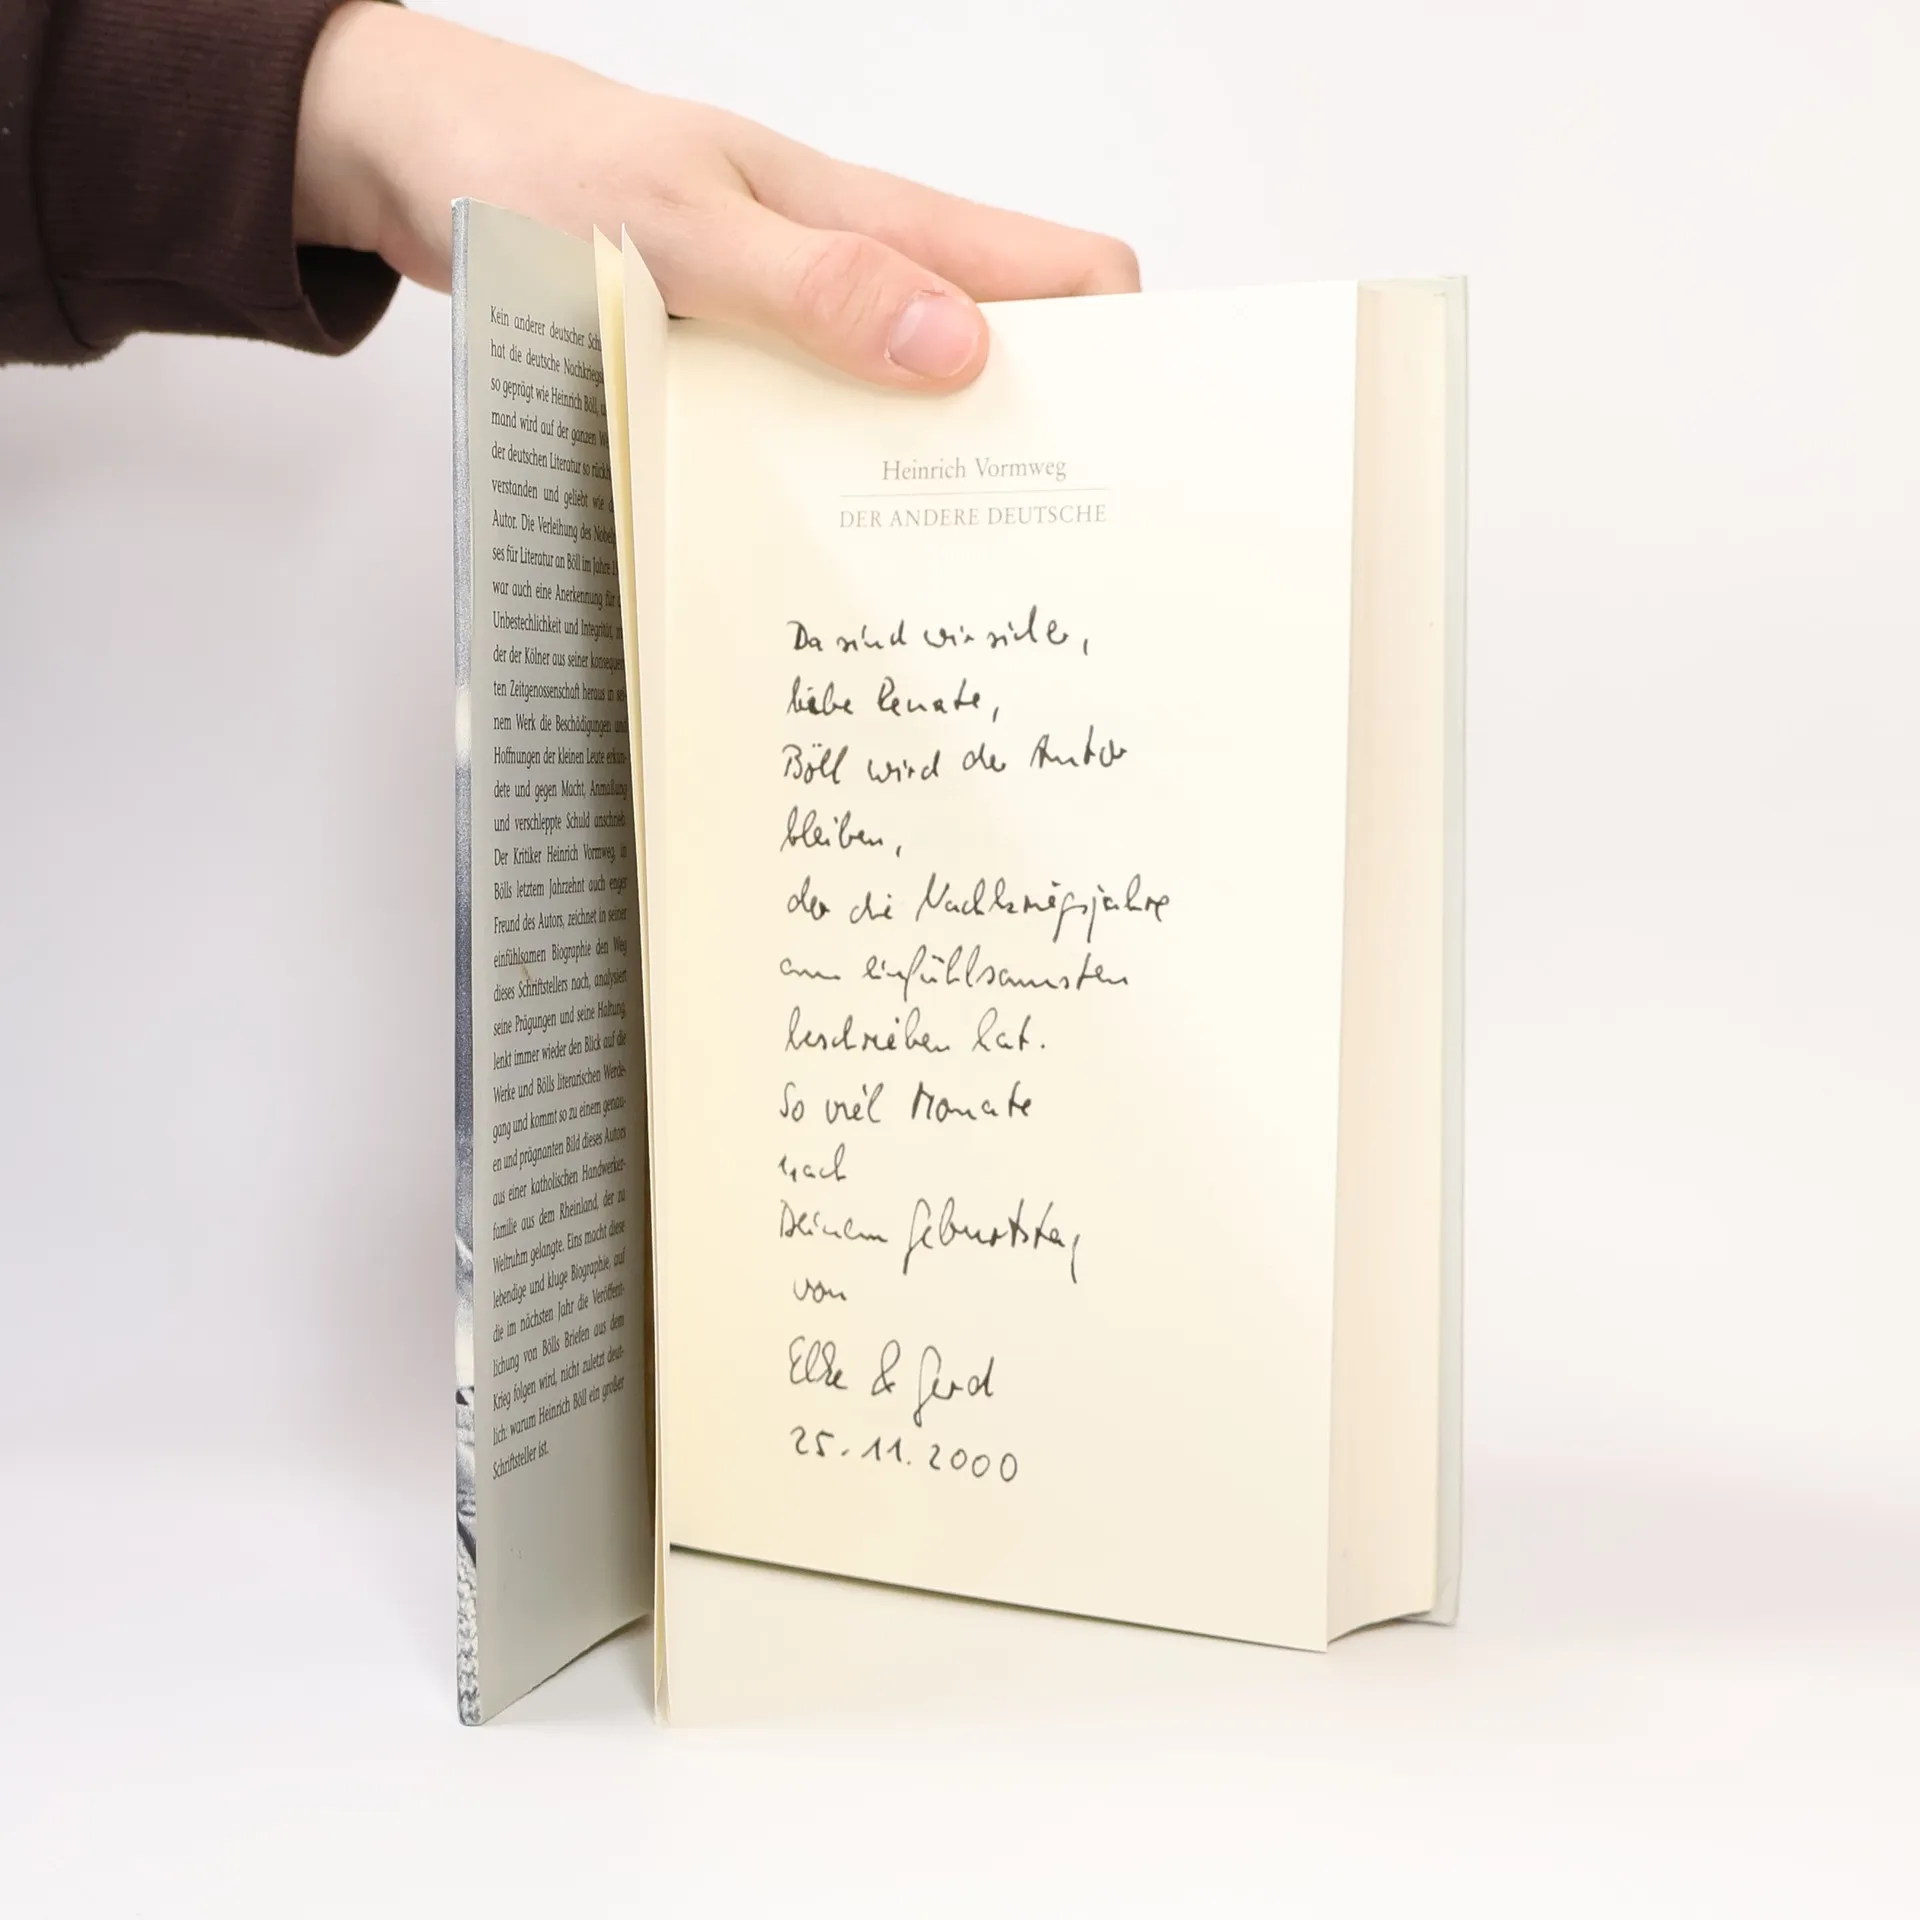 Kein anderer deutscher Sch
hat die deutsche Nachkriegs
so geprägt wie Heinrich Böll,
mand wird auf der ganzen W
der deutschen Literatur so rückh
verstanden und geliebt wie d
Autor. Die Verleihung des Nobel
ses für Literatur an Böll im Jahre 1
war auch eine Anerkennung für
Unbestechlichkeit und Integrität,
der der Kölner aus seiner konsequen
ten Zeitgenossenschaft heraus in sei-
nem Werk die Beschädigungen und
Hoffnungen der kleinen Leute erkun-
dete und gegen Macht, Anmaßung
und verschleppte Schuld anschrieb.
Der Kritiker Heinrich Vormweg, in
Bölls letztem Jahrzehnt auch enger
Freund des Autors, zeichnet in seiner
einfühlsamen Biographie den Weg
dieses Schriftstellers nach, analysiert
seine Prägungen und seine Haltung,
lenkt immer wieder den Blick auf die
Werke und Bölls literarischen Werde-
gang und kommt so zu einem genau-
en und prägnanten Bild dieses Autors
aus einer katholischen Handwerker-
familie aus dem Rheinland, der zu
Weltruhm gelangte. Eins macht diese
lebendige und kluge Biographie, auf
die im nächsten Jahr die Veröffent-
lichung von Bölls Briefen aus dem
Krieg folgen wird, nicht zuletzt deut-
lich: warum Heinrich Böll ein großer
Schriftsteller ist.
Heinrich Vormweg
DER ANDERE DEUTSCHE
Da sind wir sicher,
liebe Renate,
Böll wird der Autor
bleiben,
der die Nachkriegsjahre
am einfühlsamsten
beschrieben hat.
So viel Monate
nach
Deinem Geburtstag
von
Elke & Gerd
25.11.2000